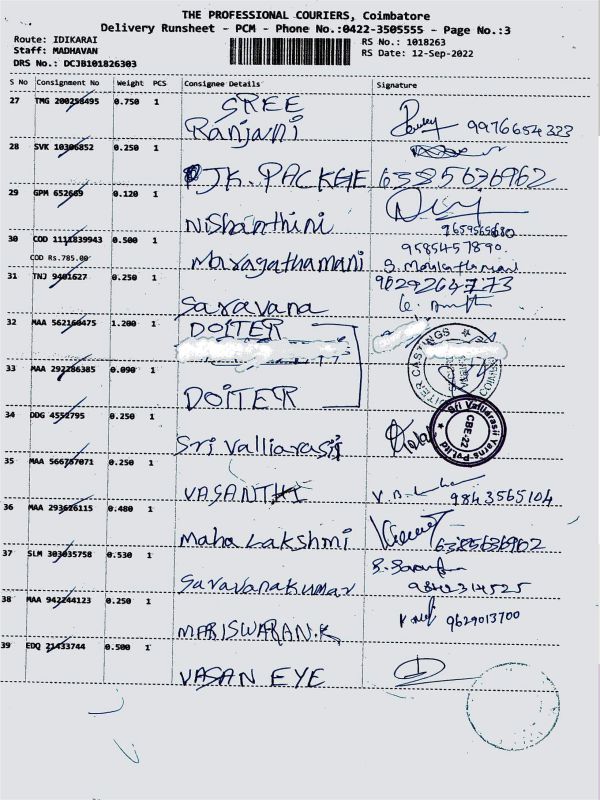 THE PROFESSIONAL COURIERS, Coimbatore
Delivery Runsheet - PCM - Phone No.:0422-3505555 - Page No.:3
Route: IDIKARAI
RS No.: 1018263
Staff: MADHAVAN
RS Date: 12-Sep-2022
DRS No.: DCJB101826303
S No Consignment No Weight PCS Consignee Details Signature
27 TMG 200258495 0.750 1 SREE
Ranjani 9976654323
28 SVK 10306852 0.250 1
JK. PACKEGE 6385636962
29 GPM 652689 0.120 1
Nishanthini
30 COD 1111839943 0.500 1 9585457890
COD Rs.785.00 Maragathamani
31 TNJ 9401627 0.250 1 9629264773
Saravana
32 MAA 562160475 1.200 1 DOITER
33 MAA 292286385 0.090 1
DOITER
ITER CASTINGS
34 DDG 4552795 0.250 1
Sri Valliarasii
Sri Valliarasii Yarns Pvt Ltd
CBE-22
35 MAA 566757071 0.250 1
VASANTHI 9843565104
36 MAA 293626115 0.480 1
Maha Lakshmi 6385636962
37 SLM 303035758 0.530 1
Saravanakumar 9842314525
38 MAA 942244123 0.250 1
MARISWARAN.K 9629013700
39 EDQ 21433744 0.500 1
VASAN EYE